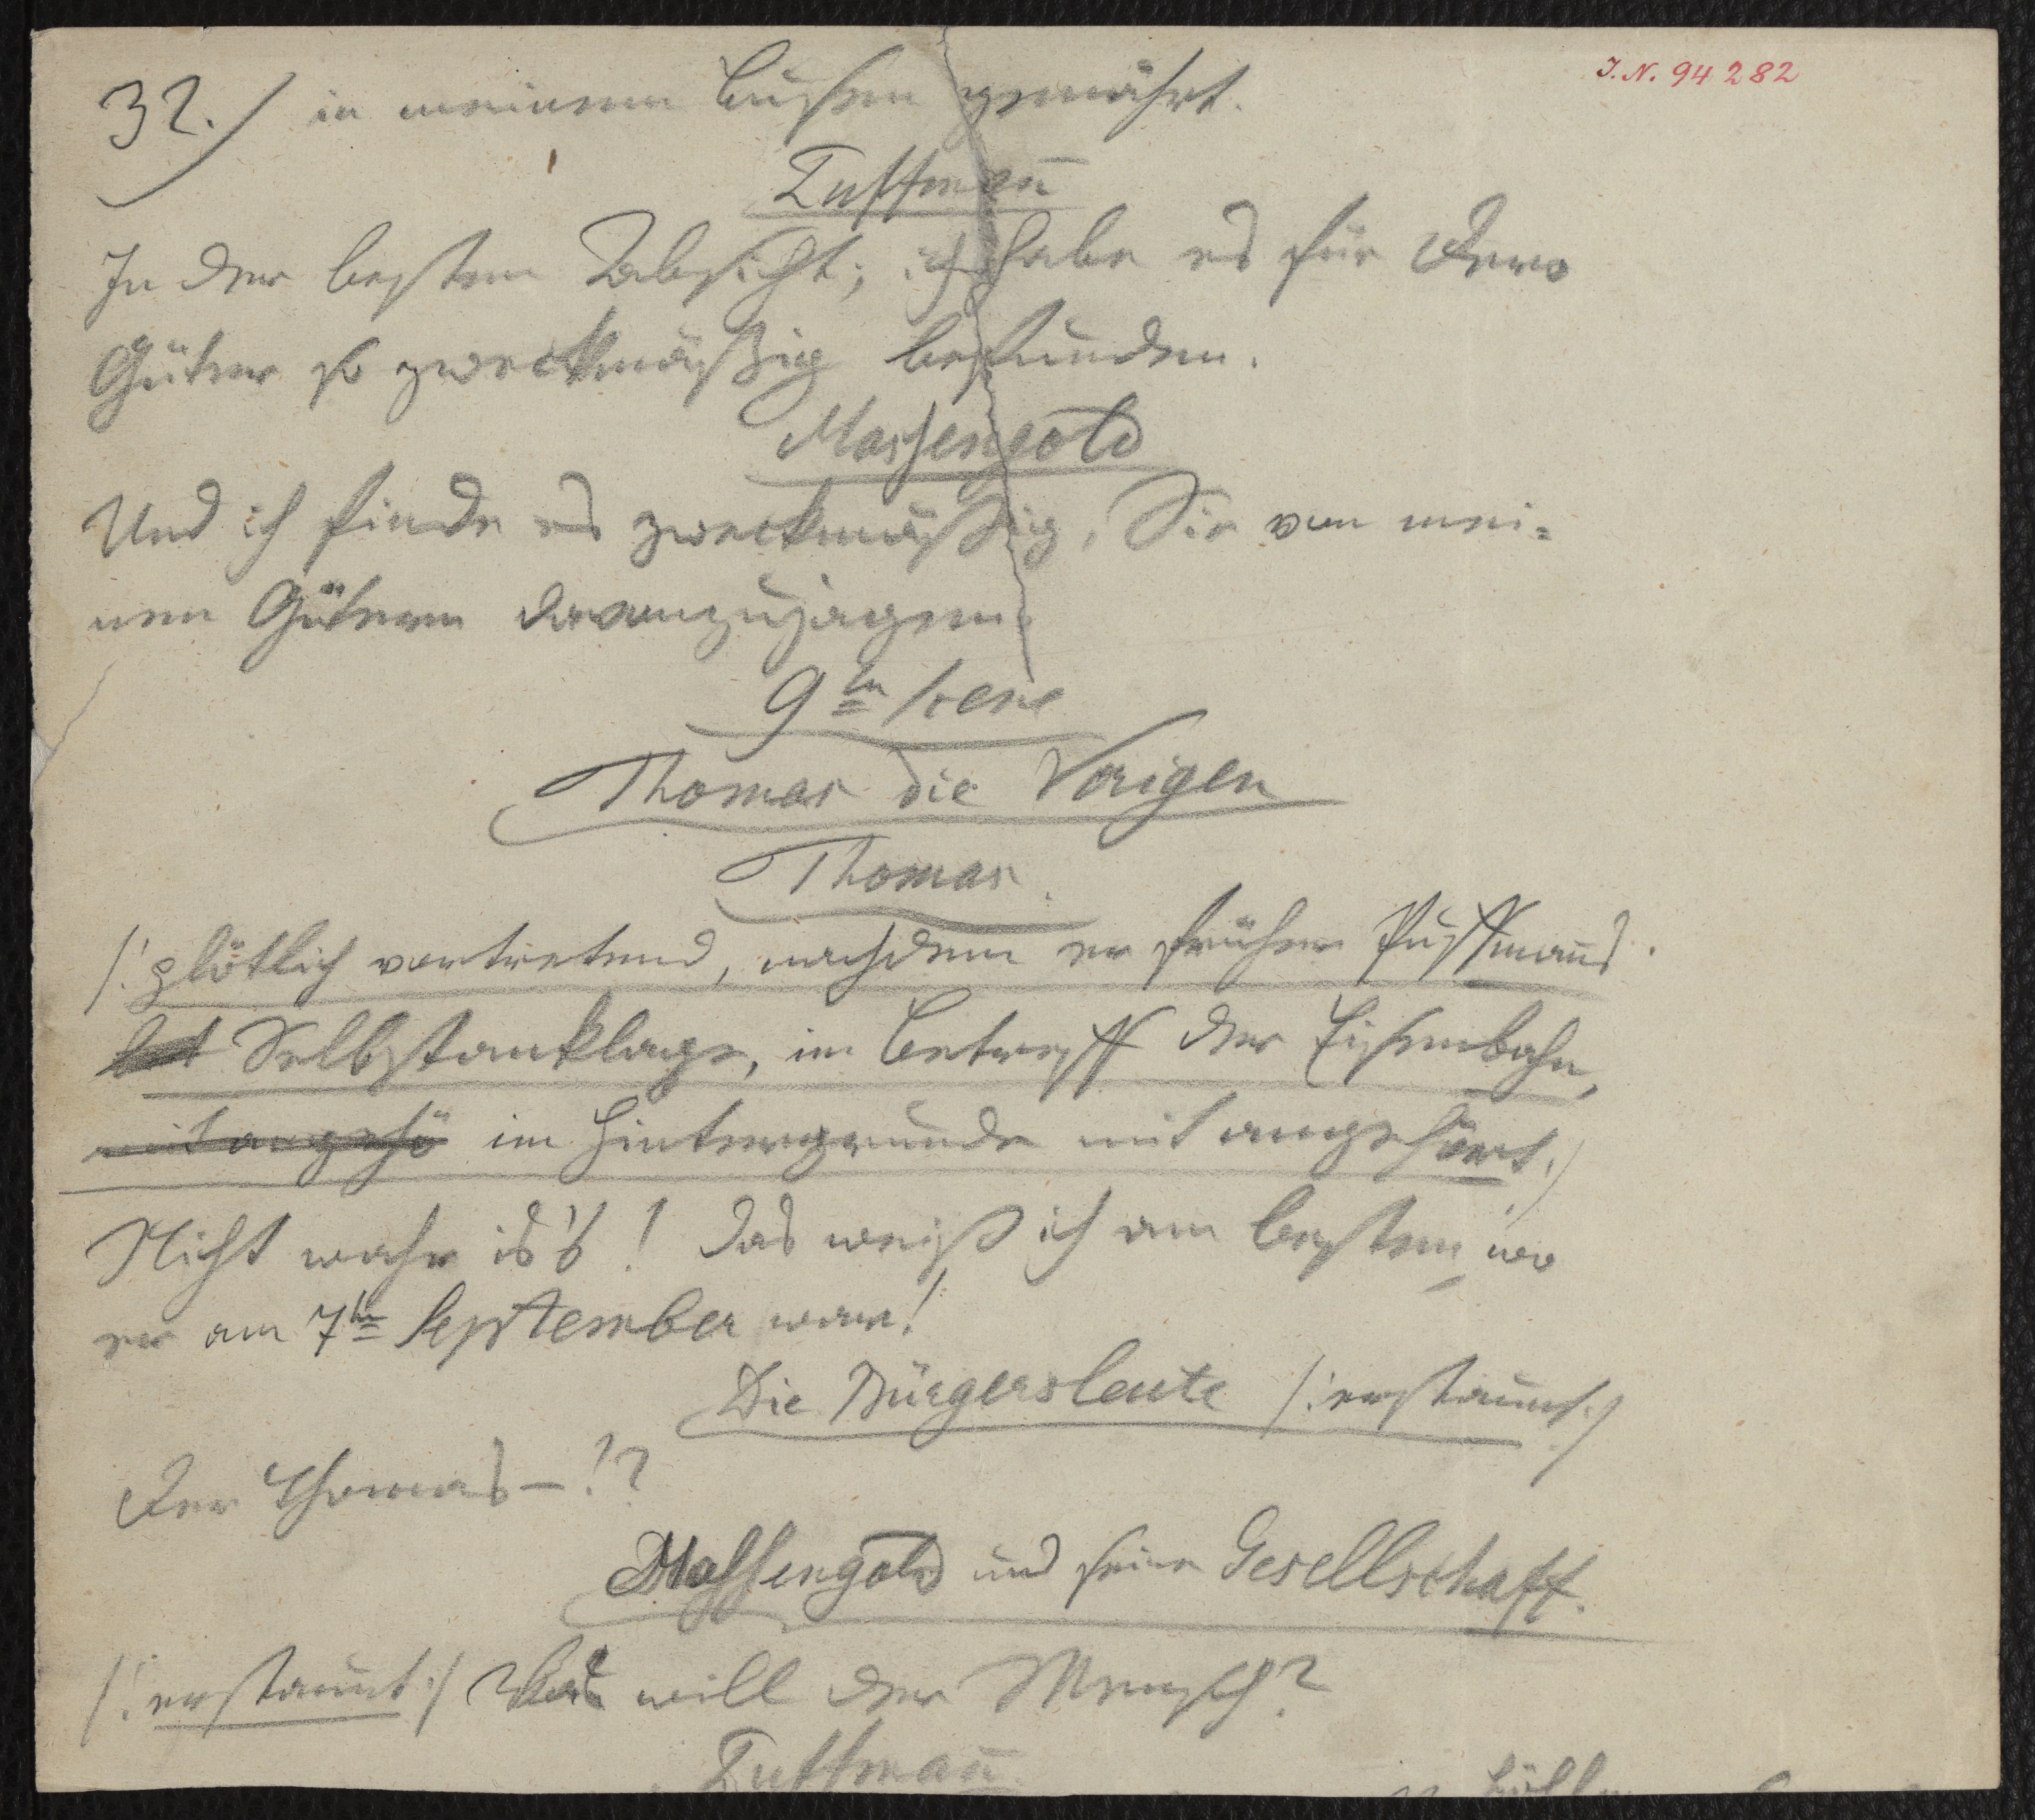 J. N. 94282
32./ in meinem Busen genährt.
Puffmañ
In der besten Absicht; ich habe es für Dero
Güter so zweckmäßig befunden.
Massengold
Und ich finde es zweckmäßig, Sie von mei=
nen Gütern davonzujagen.
9te Scene
Thomas die Vorigen
Thomas.
/: plötzlich vortretend, nachdem er früher Puffmañs
Selbstanklage, in Betreff der Eisenbahn,
mit angehö im Hintergrunde mit angehört. :/
Nicht wahr is's! Das weiß ich am besten, wo
er am 7ten September war!
Die Bürgersleute /: erstaunt :/
Der Thomas – !?
Massengold und seine Gesellschaft.
/: erstaunt :/ Was will der Mensch?
Puffmañ